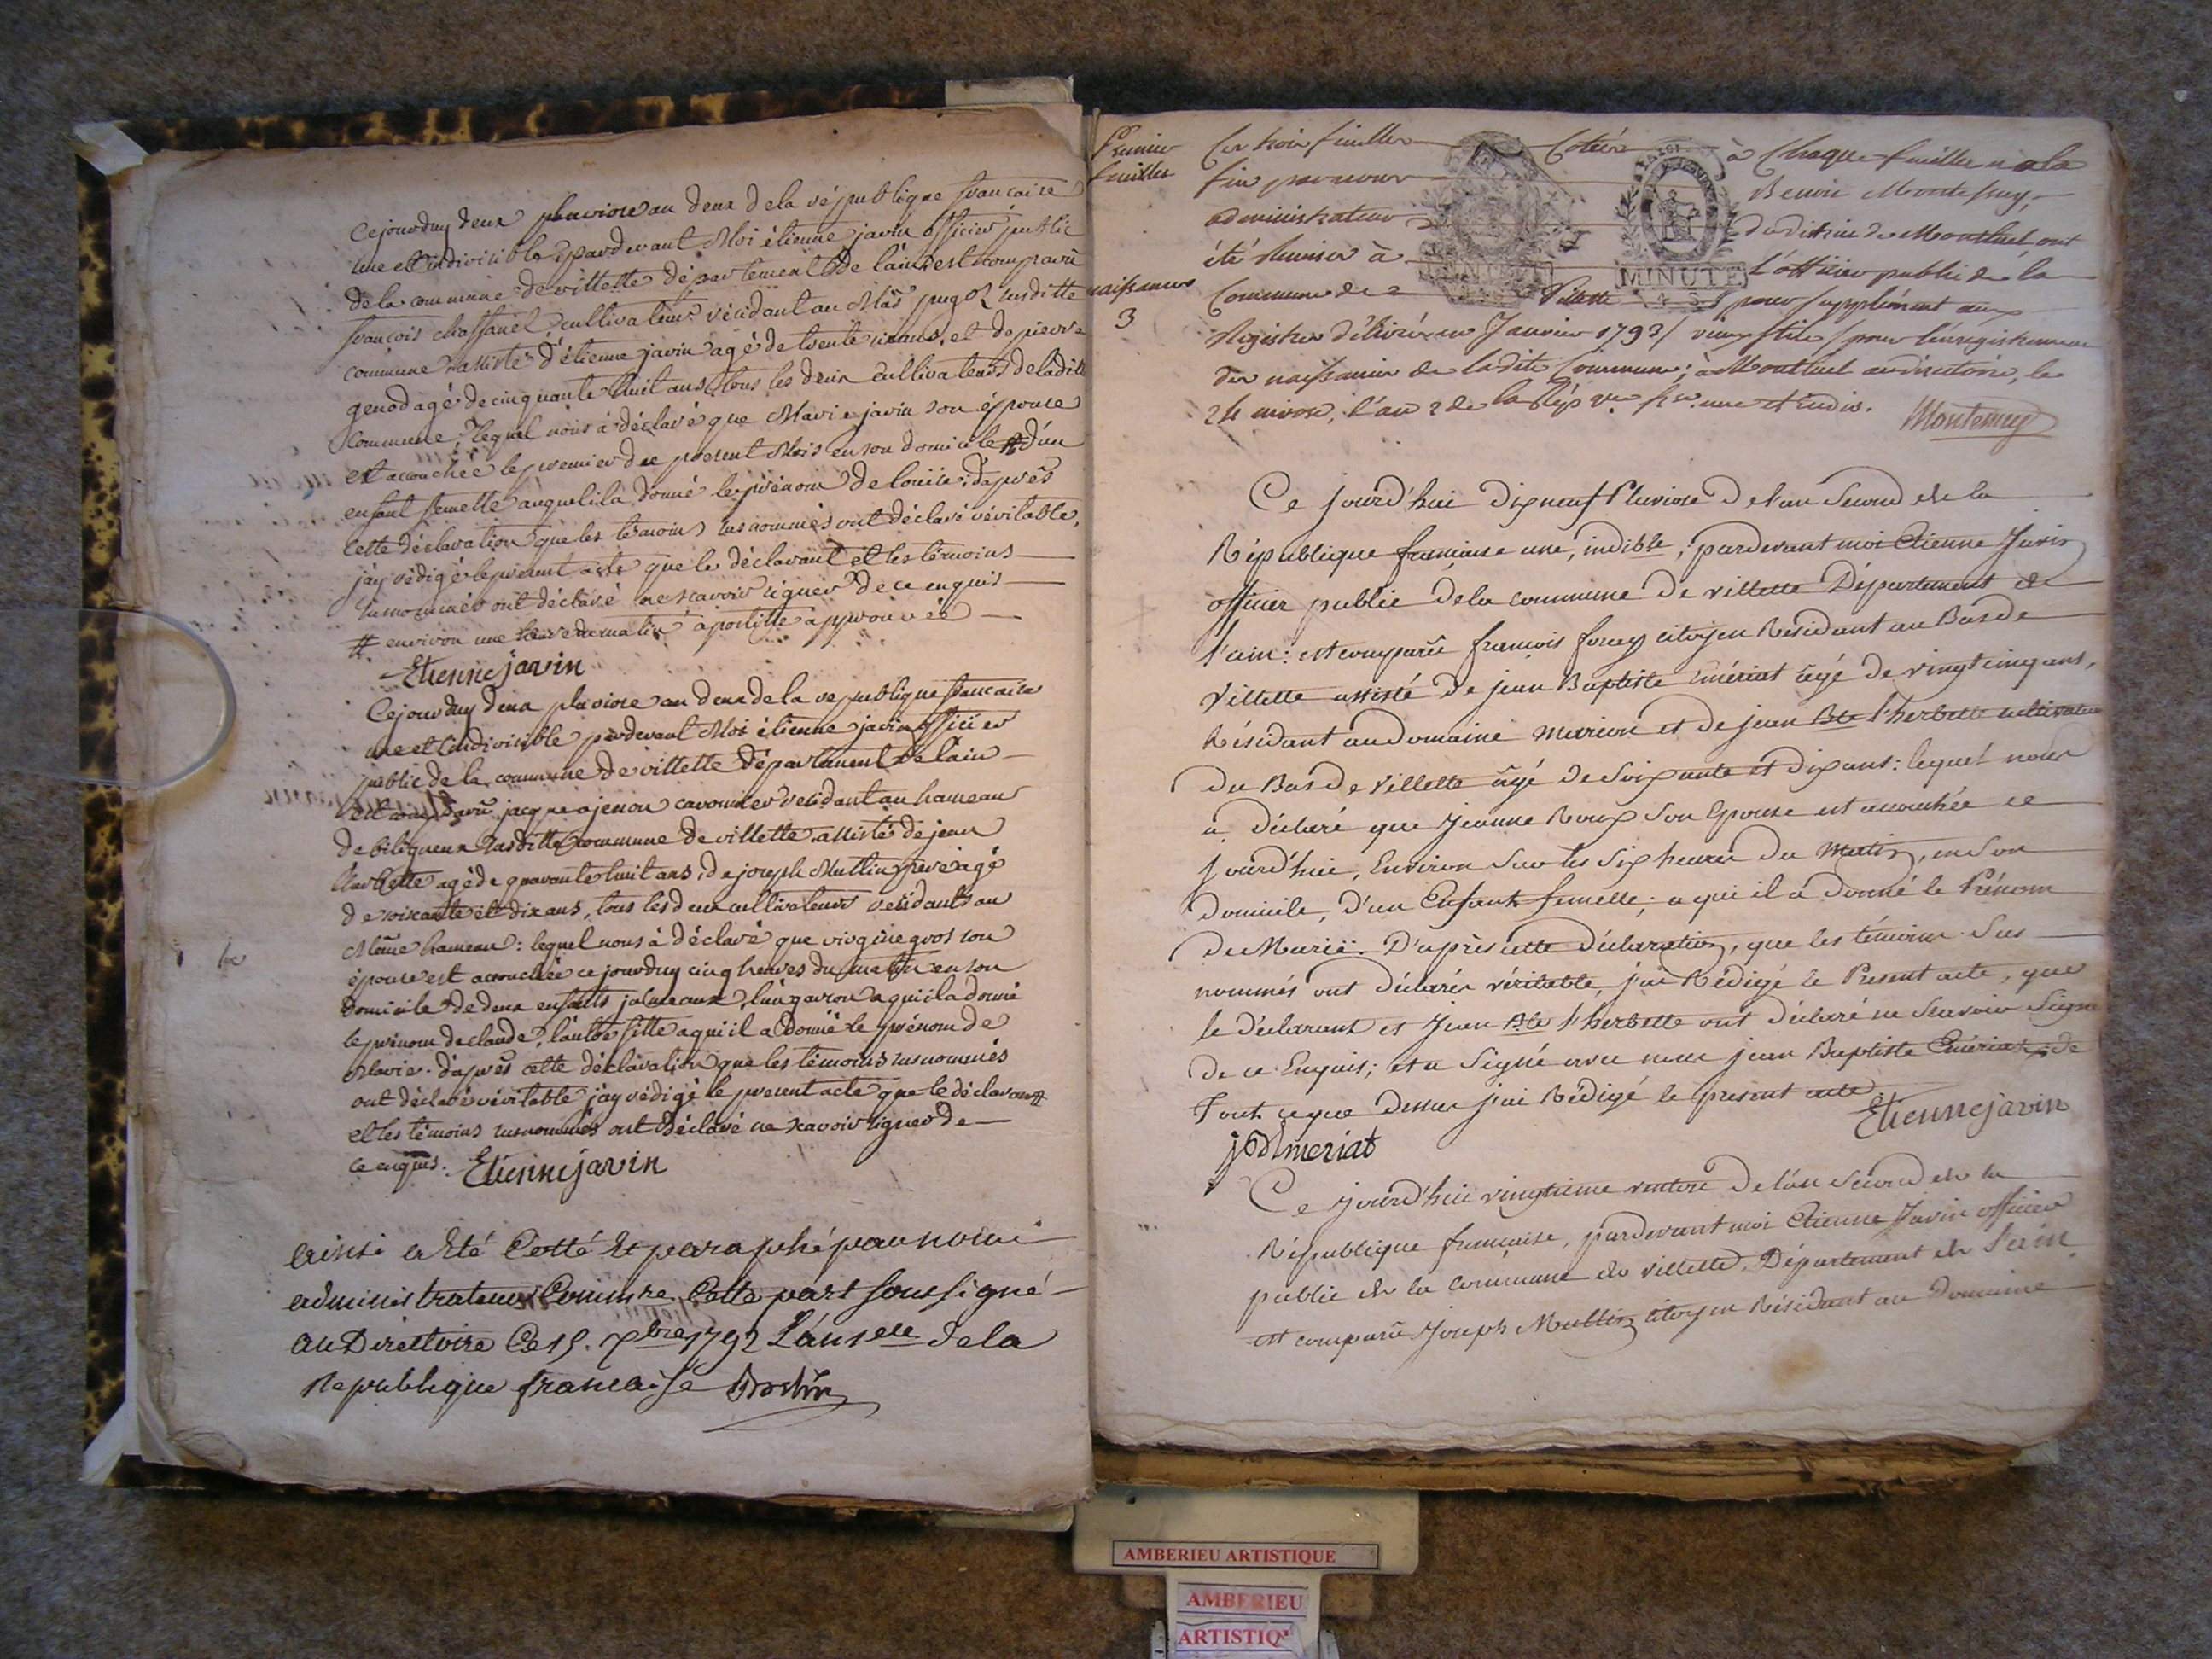 cejourduy deux pluviose an deux dela république francaise
une et indivisible pardevant Moi étienne javin officier public
dela commune de villette département de láin est comparû
francois chassanel cultivateur résidant au Mâs susditte
commune assisté d'étienne javin agé de trente et de pierre
genod agé de cinquante huit ans tous les deux cultivateurs deladitte
commune, lequel nous à déclaré que Marie javin son épouse
est accouchée le premier du présent Mois en son domicile # d'un
enfant femelle auquel il à donné le prénom de louise, d'après
cette déclaration que les témoins susnommés ont déclaré véritable,
jáy rédigé le présent acte que le déclarant et les témoins
susnommés ont déclaré ne scavoir signer de ce enquis
# environ une heure du matin apostille approuvée
Etienne javin
Cejourduy deux pluviose an deux de la republique francaise
une et indivisible pardevant Moi étienne javin officier
public de la commune de villette département de láin
est comparû jacque ajenou résidant au hameau
de biligneux susditte commune de villette assisté de jean
agé de quarante huit ans, de joseph Mullin père agé
de soixante et dix ans, tous les deux cultivateurs résidants au
Même hameau: lequel nous à déclaré que virgine gros son
épouse est accouchée ce jourduy cinq heures du matin en son
domicile de deux enfants jumeaux, l'un garcon a qui il a donné
le prénom de claude, láutre fille a qui il a donné le prénom de
Marie. d'après cette déclaration que les témoins susnommés
ont déclaré véritable jáy rédigé le present acte que le déclarant
et les témoins susnommés ont déclaré ne scavoir signer de
ce enquis. Etienne javin
ainsi a Eté Cotté Et paraphé par nous
administrateur Commre Cette part soussigné
au Directoire Ce 15. 7bre 1792 L'an 1er de la
Republique francaise
Premier
feuillet
naissances
3
Ces trois feuilles Cotées à Chaque feuille et a la
fin par nous Benoit Montessuy
administrateur du district de Montluel ont
été Remises à L'officier public de la
MINUTE
Commune de Villette pour supplément aux
Registres délivrés en Janvier 1793 / vieux stile / pour l'enregistrement
des naissances de ladite Commune; à Montluel au directoire, le
24 nivose, l'an 2 de la Rép. une et indiv. Montessuy
Ce jourd'hui dixneuf Pluviose de l'an Second de la
République francaise une, indible, pardevant moi Etienne Javin
officier public dela commune de villette Département de
l'ain: est comparû francois foray citoyen Residant au Bas de
Villette assisté de jean Baptiste Emériat âgé de vingt cinq ans,
Résidant au domaine Marion et de jean Bte l'herbette cultivateur
du Bas de Villette âgé de Soixante et dix ans: lequel nous
a déclaré que Jeanne Roux Son Epouse est accouchée ce
jourd'hui, Environ Sur les Six heures du Matin, en Son
domicile, D'un Enfant femelle; a qui il a donné le Prénom
de Marie. D'après cette déclaration, que les témoins Sus
nommés ont déclarés véritable, j'ai Rédigé le Present acte, que
le déclarant et Jean Bte l'herbette ont déclaré ne Scavoir Signer
de ce Enquis; et a Signé avec nous jean Baptiste Emériat; de
Tout ce que dessus j'ai Rédigé le present acte
Etienne javin
Ce jourd'hui vingtieme ventose de l'an Second de la
République francaise, pardevant moi Etienne Javin officier
public de la commune de villette, Département de l'ain
est comparû Joseph Mullin citoyen Résidant au Domaine
AMBERIEU ARTISTIQUE
AMBERIEU
ARTISTIQ